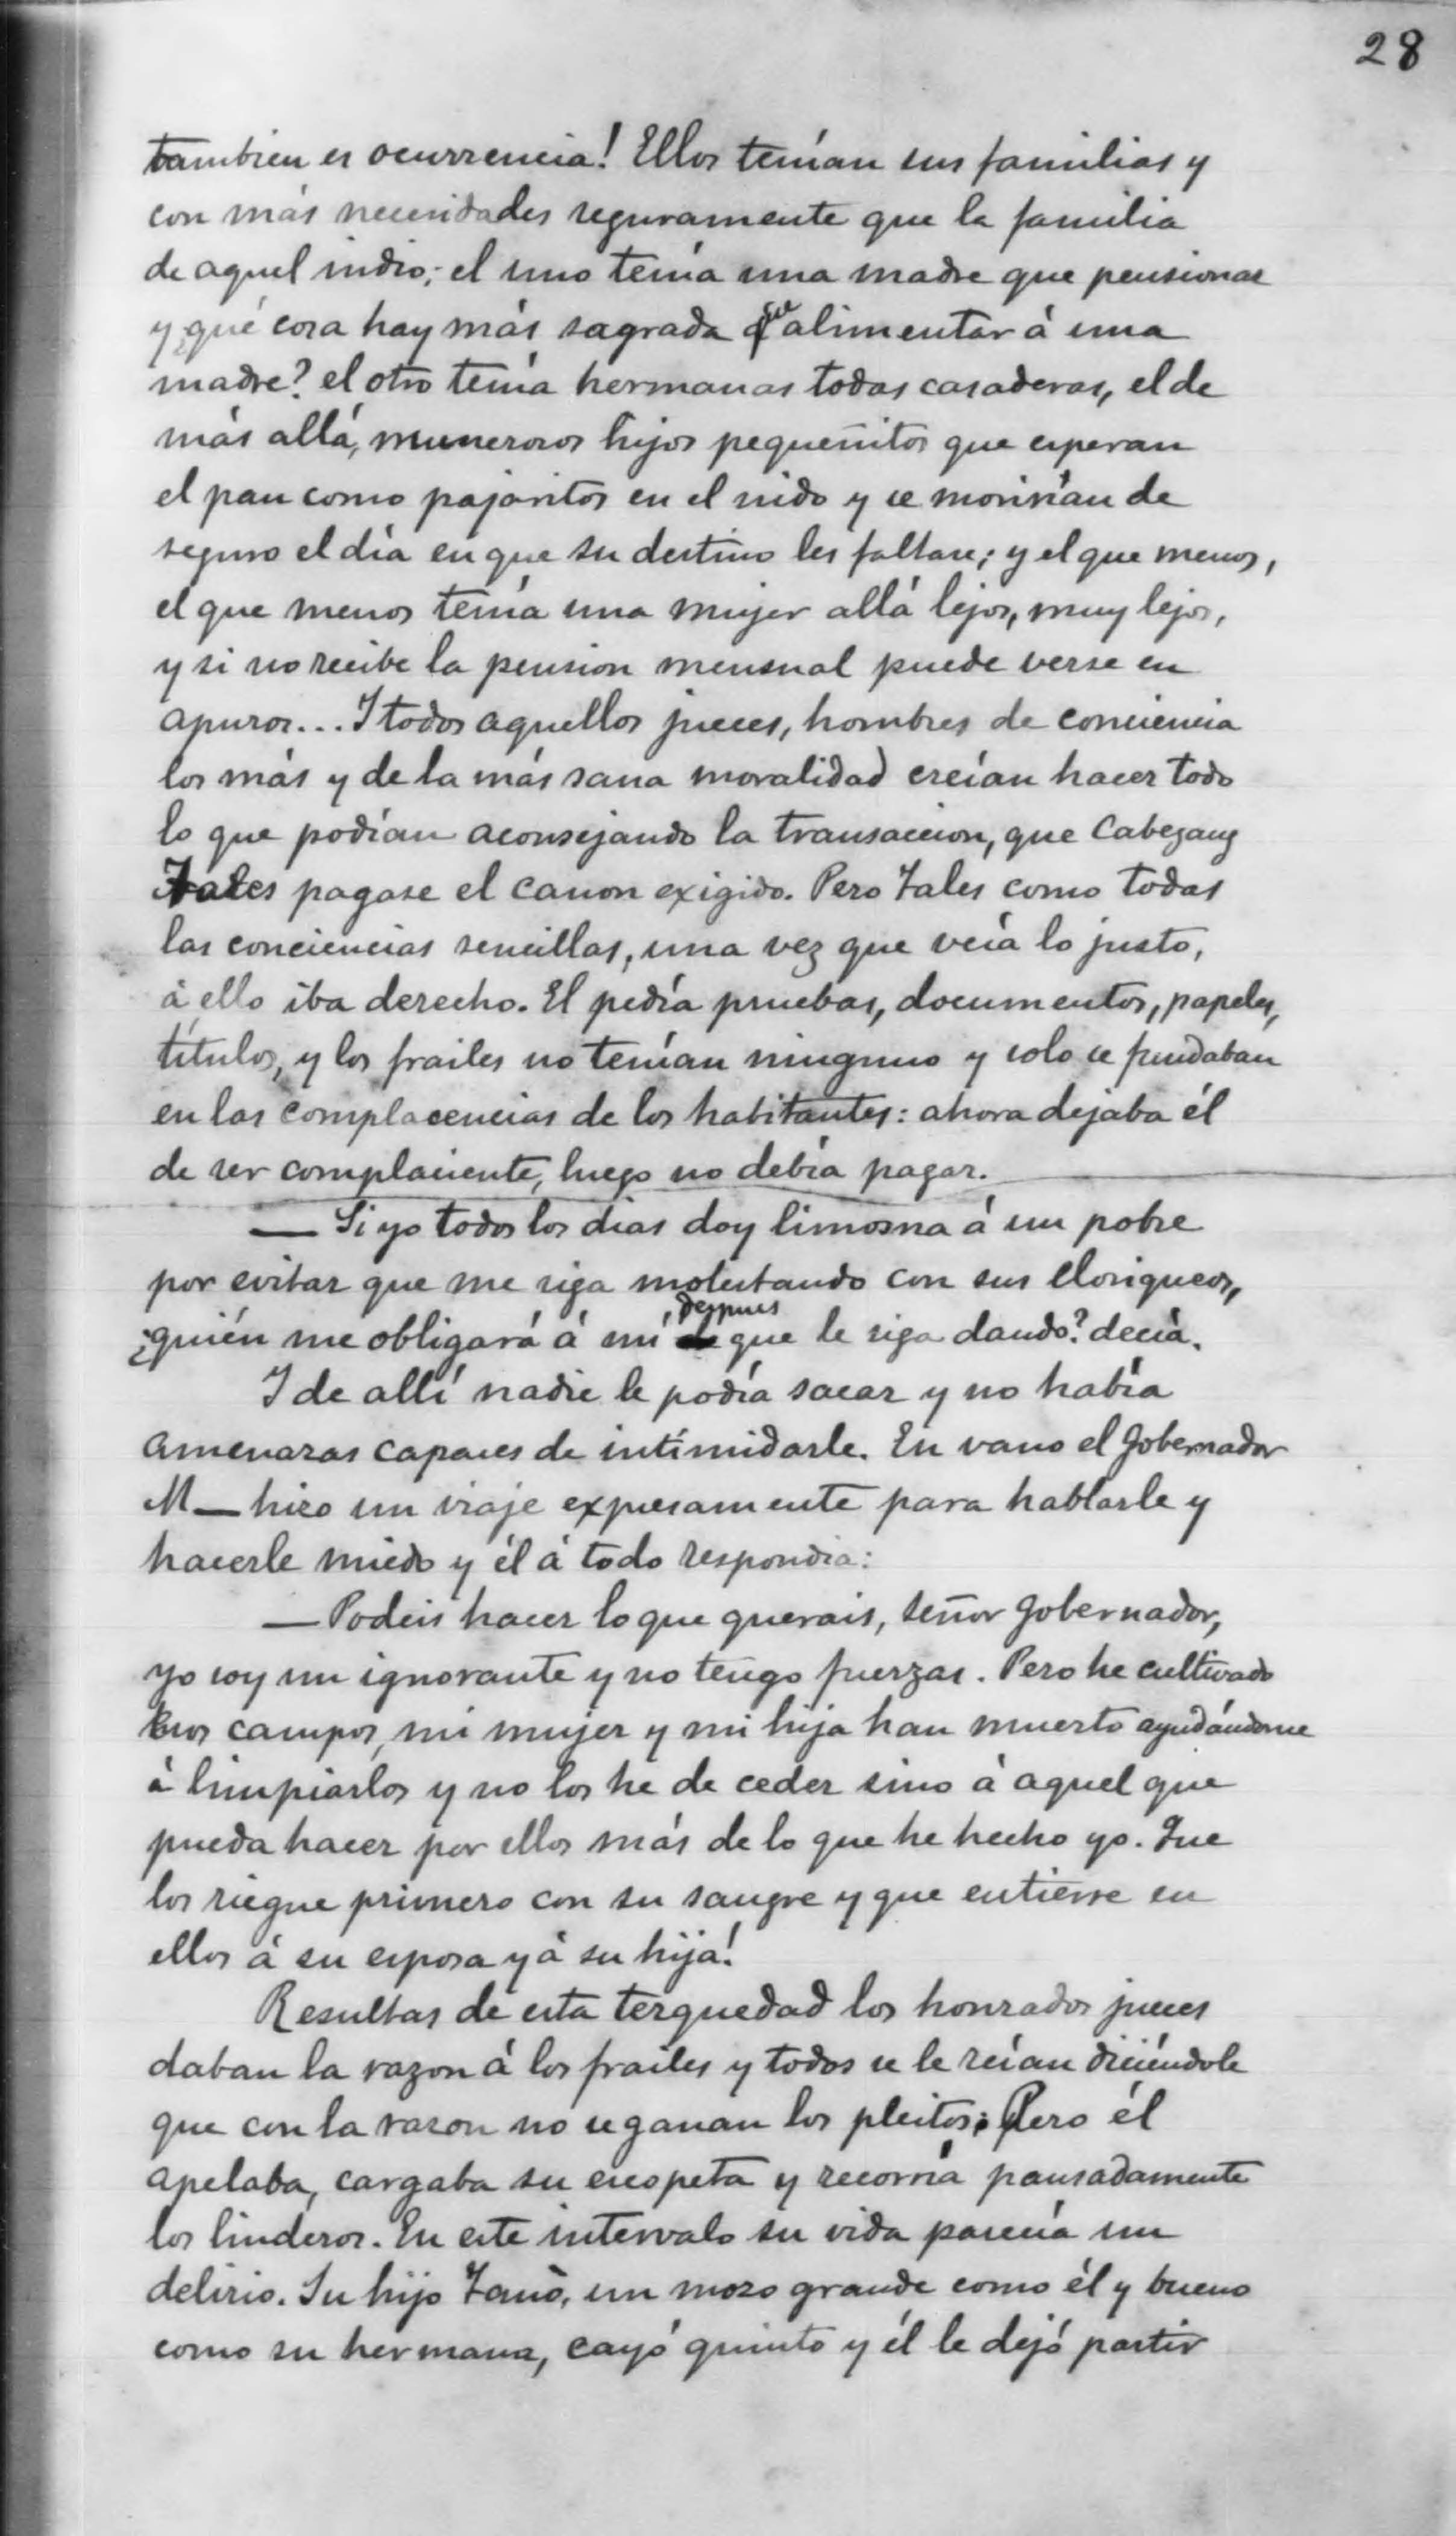 28
tambien es ocurrencia! Ellos tenían sus familias y
con más necesidades seguramente que la familia
de aquel indio; el uno tenía una madre que pensionar
y ¿qué cosa hay más sagrada que alimentar á una
madre? el otro tenía hermanas todas casaderas, el de
más allá, muneroros hijos pequeñitos que esperan
el pan como pajaritos en el nido y se morirían de
seguro el día en que su destino les faltase; y el que menos,
el que menos tenía una mujer allá lejos, muy lejos,
y si no recibe la pension mensual puede verse en
apuros... I todos aquellos jueces, hombres de conciencia
los más y de la más sana moralidad creían hacer todo
lo que podían aconsejando la transaccion, que Cabezang
Tales pagase el canon exigido. Pero Tales como todas
las conciencias sencillas, una vez que veía lo justo,
á ello iba derecho. El pedía pruebas, documentos, papeles,
títulos, y los frailes no tenían ninguno y solo se fundaban
en las complacencias de los habitantes: ahora dejaba él
de ser complaciente, luego no debía pagar.
— Si yo todos los dias doy limosna á un pobre
por evitar que me siga molestando con sus lloriqueos,
¿quién me obligará á mí despues que le siga dando? decía.
I de allí nadie le podía sacar y no había
amenazas capaces de intimidarle. En vano el Gobernador
M— hizo un viaje expresamente para hablarle y
hacerle miedo y él á todo respondia:
— Podeis hacer lo que querais, señor Gobernador,
yo soy un ignorante y no tengo fuerzas. Pero he cultivado
esos campos, mi mujer y mi hija han muerto ayudándome
á limpiarlos y no los he de ceder sino á aquel que
pueda hacer por ellos más de lo que he hecho yo. Que
los riegue primero con su sangre y que entierre en
ellos á su esposa y á su hija!
Resultas de esta terquedad los honrados jueces
daban la razon á los frailes y todos se le reían diciéndole
que con la razon no se ganan los pleitos. Pero él
apelaba, cargaba su escopeta y recorría pausadamente
los linderos. En este intervalo su vida parecía un
delirio. Su hijo Tanò, un mozo grande como él y bueno
como su hermana, cayó quinto y él le dejó partir